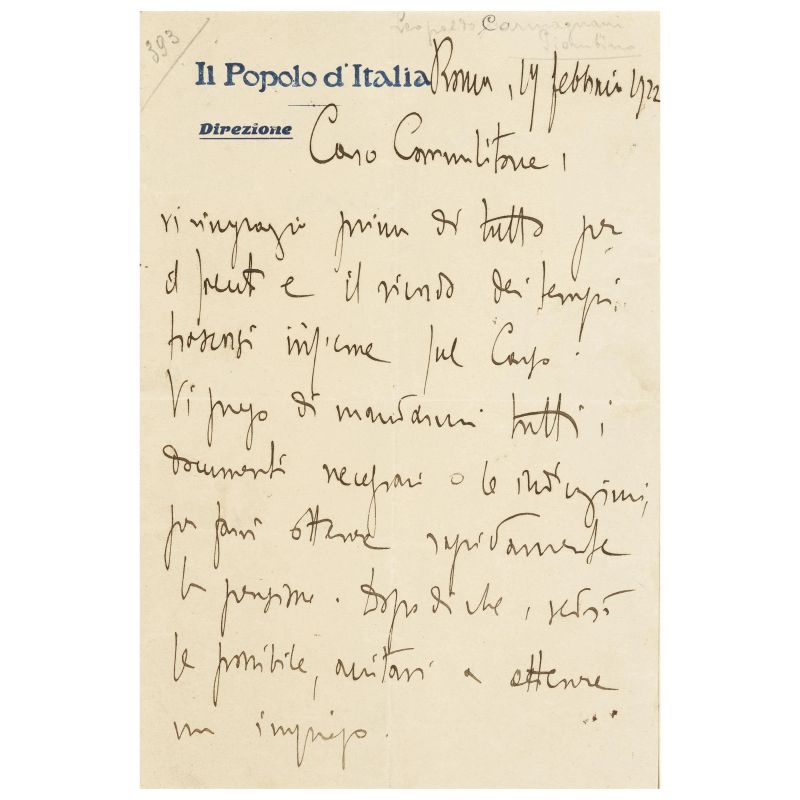 393
Leopoldo Carmagnani
Piombino
Il Popolo d'Italia Roma, 17 febbraio 1922
Direzione
Caro Commilitone,
vi ringrazio prima di tutto per
il e il ricordo dei tempi
trascorsi insieme sul Carso.
Vi prego di mandarmi tutti i
documenti necessari o le indicazioni,
per farvi ottenere rapidamente
la pensione. Dopo di che, vedrò
se possibile, aiutarvi a ottenere
un impiego.